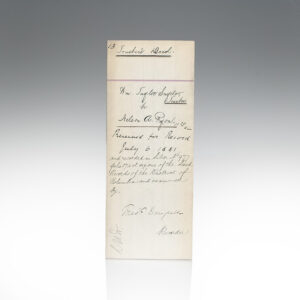 13
Trustee's Deed.
Wm Taylor Snyder
Trustee
to
Nelson A.
Received for Record
July 6 1881
and recorded in Liber No
folio et seq one of the Land
Records of the District of
Columbia and examined
by
Recorder